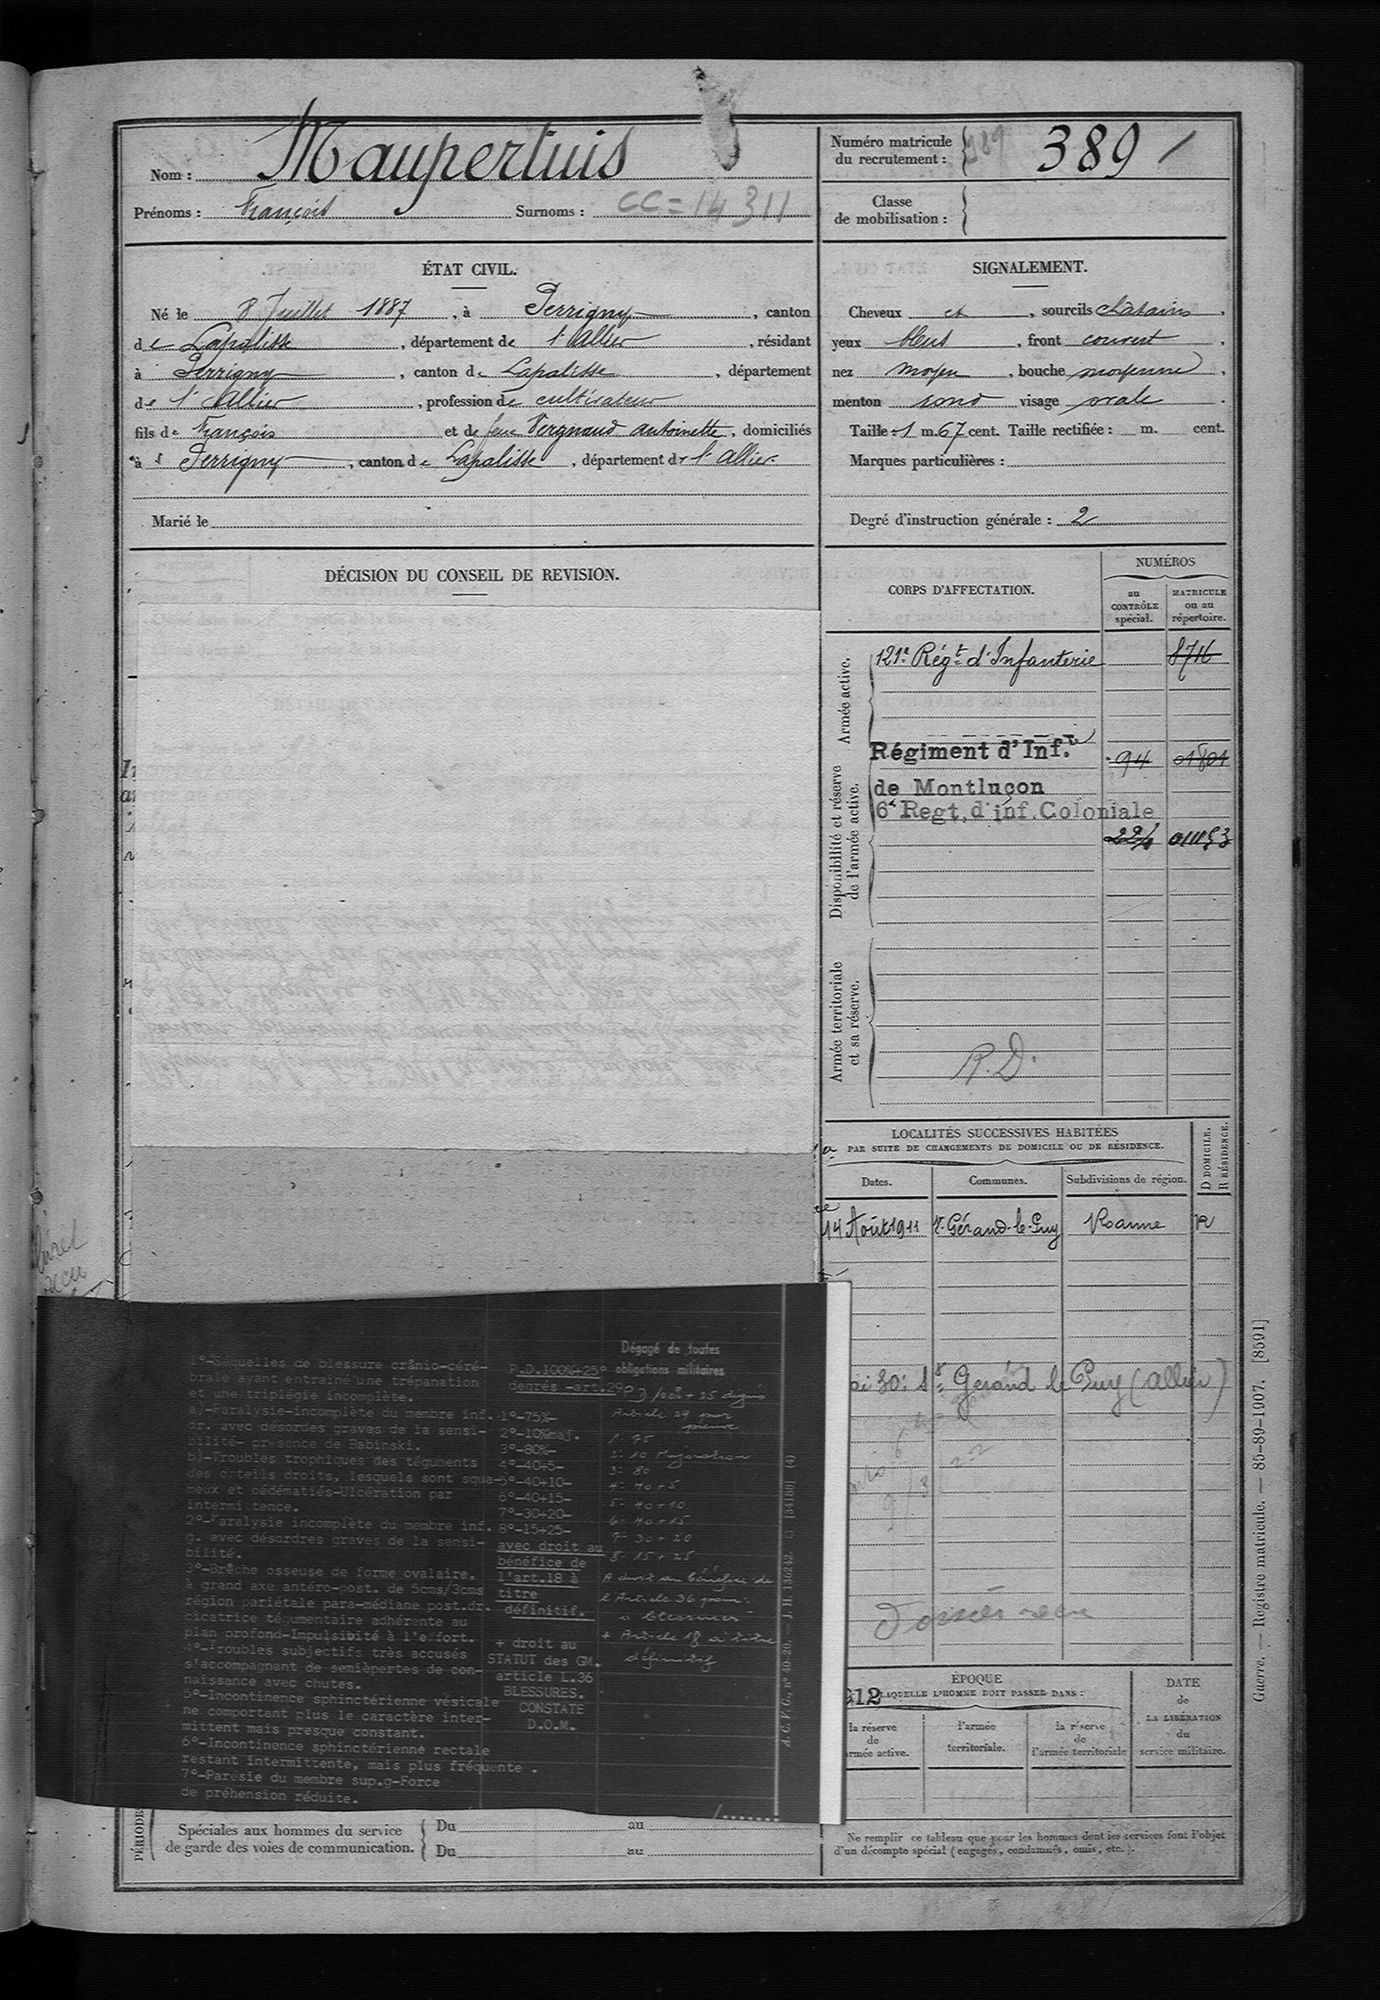 Nom : Maupertuis
Prénoms : François Surnoms : CC = 14 311
Numéro matricule
du recrutement : 389 389
Classe
de mobilisation :
ÉTAT CIVIL.
Né le 8 Juillet 1887, à Perrigny, canton
de Lapalisse, département de l'Allier, résidant
à Perrigny, canton de Lapalisse, département
de l'Allier, profession de cultivateur
fils de François et de feue Vergnaud Antoinette, domiciliés
à Perrigny, canton de Lapalisse, département de l'Allier.
Marié le
SIGNALEMENT.
Cheveux et, sourcils chatains,
yeux bleus, front couvert,
nez moyen, bouche moyenne,
menton rond visage ovale.
Taille : 1 m. 67 cent. Taille rectifiée : m. cent.
Marques particulières :
Degré d'instruction générale : 2
DÉCISION DU CONSEIL DE REVISION.
CORPS D'AFFECTATION.
NUMÉROS
au
CONTRÔLE
spécial.
MATRICULE
ou au
répertoire.
Armée active.
121e Régt d'Infanterie 8716
Disponibilité et réserve
de l'armée active.
Régiment d'Infie 94 01801
de Montluçon
6e Regt, d'inf. Coloniale
224 011153
Armée territoriale
et sa réserve.
R.D.
LOCALITÉS SUCCESSIVES HABITÉES
PAR SUITE DE CHANGEMENTS DE DOMICILE OU DE RÉSIDENCE.
D DOMICILE.
R RÉSIDENCE.
Dates. Communes. Subdivisions de région.
14 Août 1911 St Gérand-le-Puy Roanne R
30: St Gerand le Puy (Allier)
Dossier recu
1°-Séquelles de blessure crânio-céré-
brale ayant entrainé une trépanation
et une triplégie incomplète.
a)-Paralysie-incomplète du membre inf.
dr. avec désordes graves de la sensi-
bilité- presence de Babinski.
b)-Troubles trophiques des téguments
des orteils droits, lesquels sont squa-
meux et oedématiés-Ulcération par
intermittence.
2°-Paralysie incomplète du membre inf.
g. avec désordres graves de la sensi-
bilité.
3°-Brêche osseuse de forme ovalaire,
à grand axe antéro-post. de 5cms/3cms
région pariétale para-médiane post.dr.
cicatrice tégumentaire adhérente au
plan profond-Impulsibité à l'effort.
4°-Troubles subjectifs très accusés
s'accompagnant de semièpertes de con-
naissance avec chutes.
5°-Incontinence sphinctérienne vésicale
ne comportant plus le caractère inter-
mittent mais presque constant.
6°-Incontinence sphinctérienne rectale
restant intermittente, mais plus fréquente .
7°-Parésie du membre sup.g-Force
de préhension réduite.
P.D.100%+25°
degrés -art.29
1°-75%-
2°-10%maj.
3°-80%-
4°-40+5-
5°-40+10-
6°-40+15-
7°-30+20-
8°-15+25-
avec droit au
bénéfice de
l'art.18 à
titre
définitif.
+ droit au
STATUT des GM.
article L.36
BLESSURES.
CONSTATE
D.O.M.
Dégagé de toutes
obligations militaires
P.D. 100% + 25 degrés
Article 29
1- 75
2- 10 Majoration
3- 80
4- 40 + 5
5- 40 + 10
6- 40 + 15
7- 30 + 20
8- 15 + 25
A droit au bénéfice de
l'Article 36 pour :
blessures
+ Article 18 à titre
définitif
A.C.V.G., n° 40-20. — J. H. 136242. [34188] (4)
ÉPOQUE
LAQUELLE L'HOMME DOIT PASSER DANS :
la réserve
de
armée active.
l'armée
territoriale.
la réserve
de
l'armée territoriale
DATE
de
LA LIBÉRATION
du
service militaire.
PÉRIODES
Spéciales aux hommes du service
de garde des voies de communication.
Du au
Du au
Ne remplir ce tableau que pour les hommes dont les services font l'objet
d'un décompte spécial (engagés, condamnés, omis, etc.).
Guerre. — Registre matricule. — 85-89-1907. [8591]